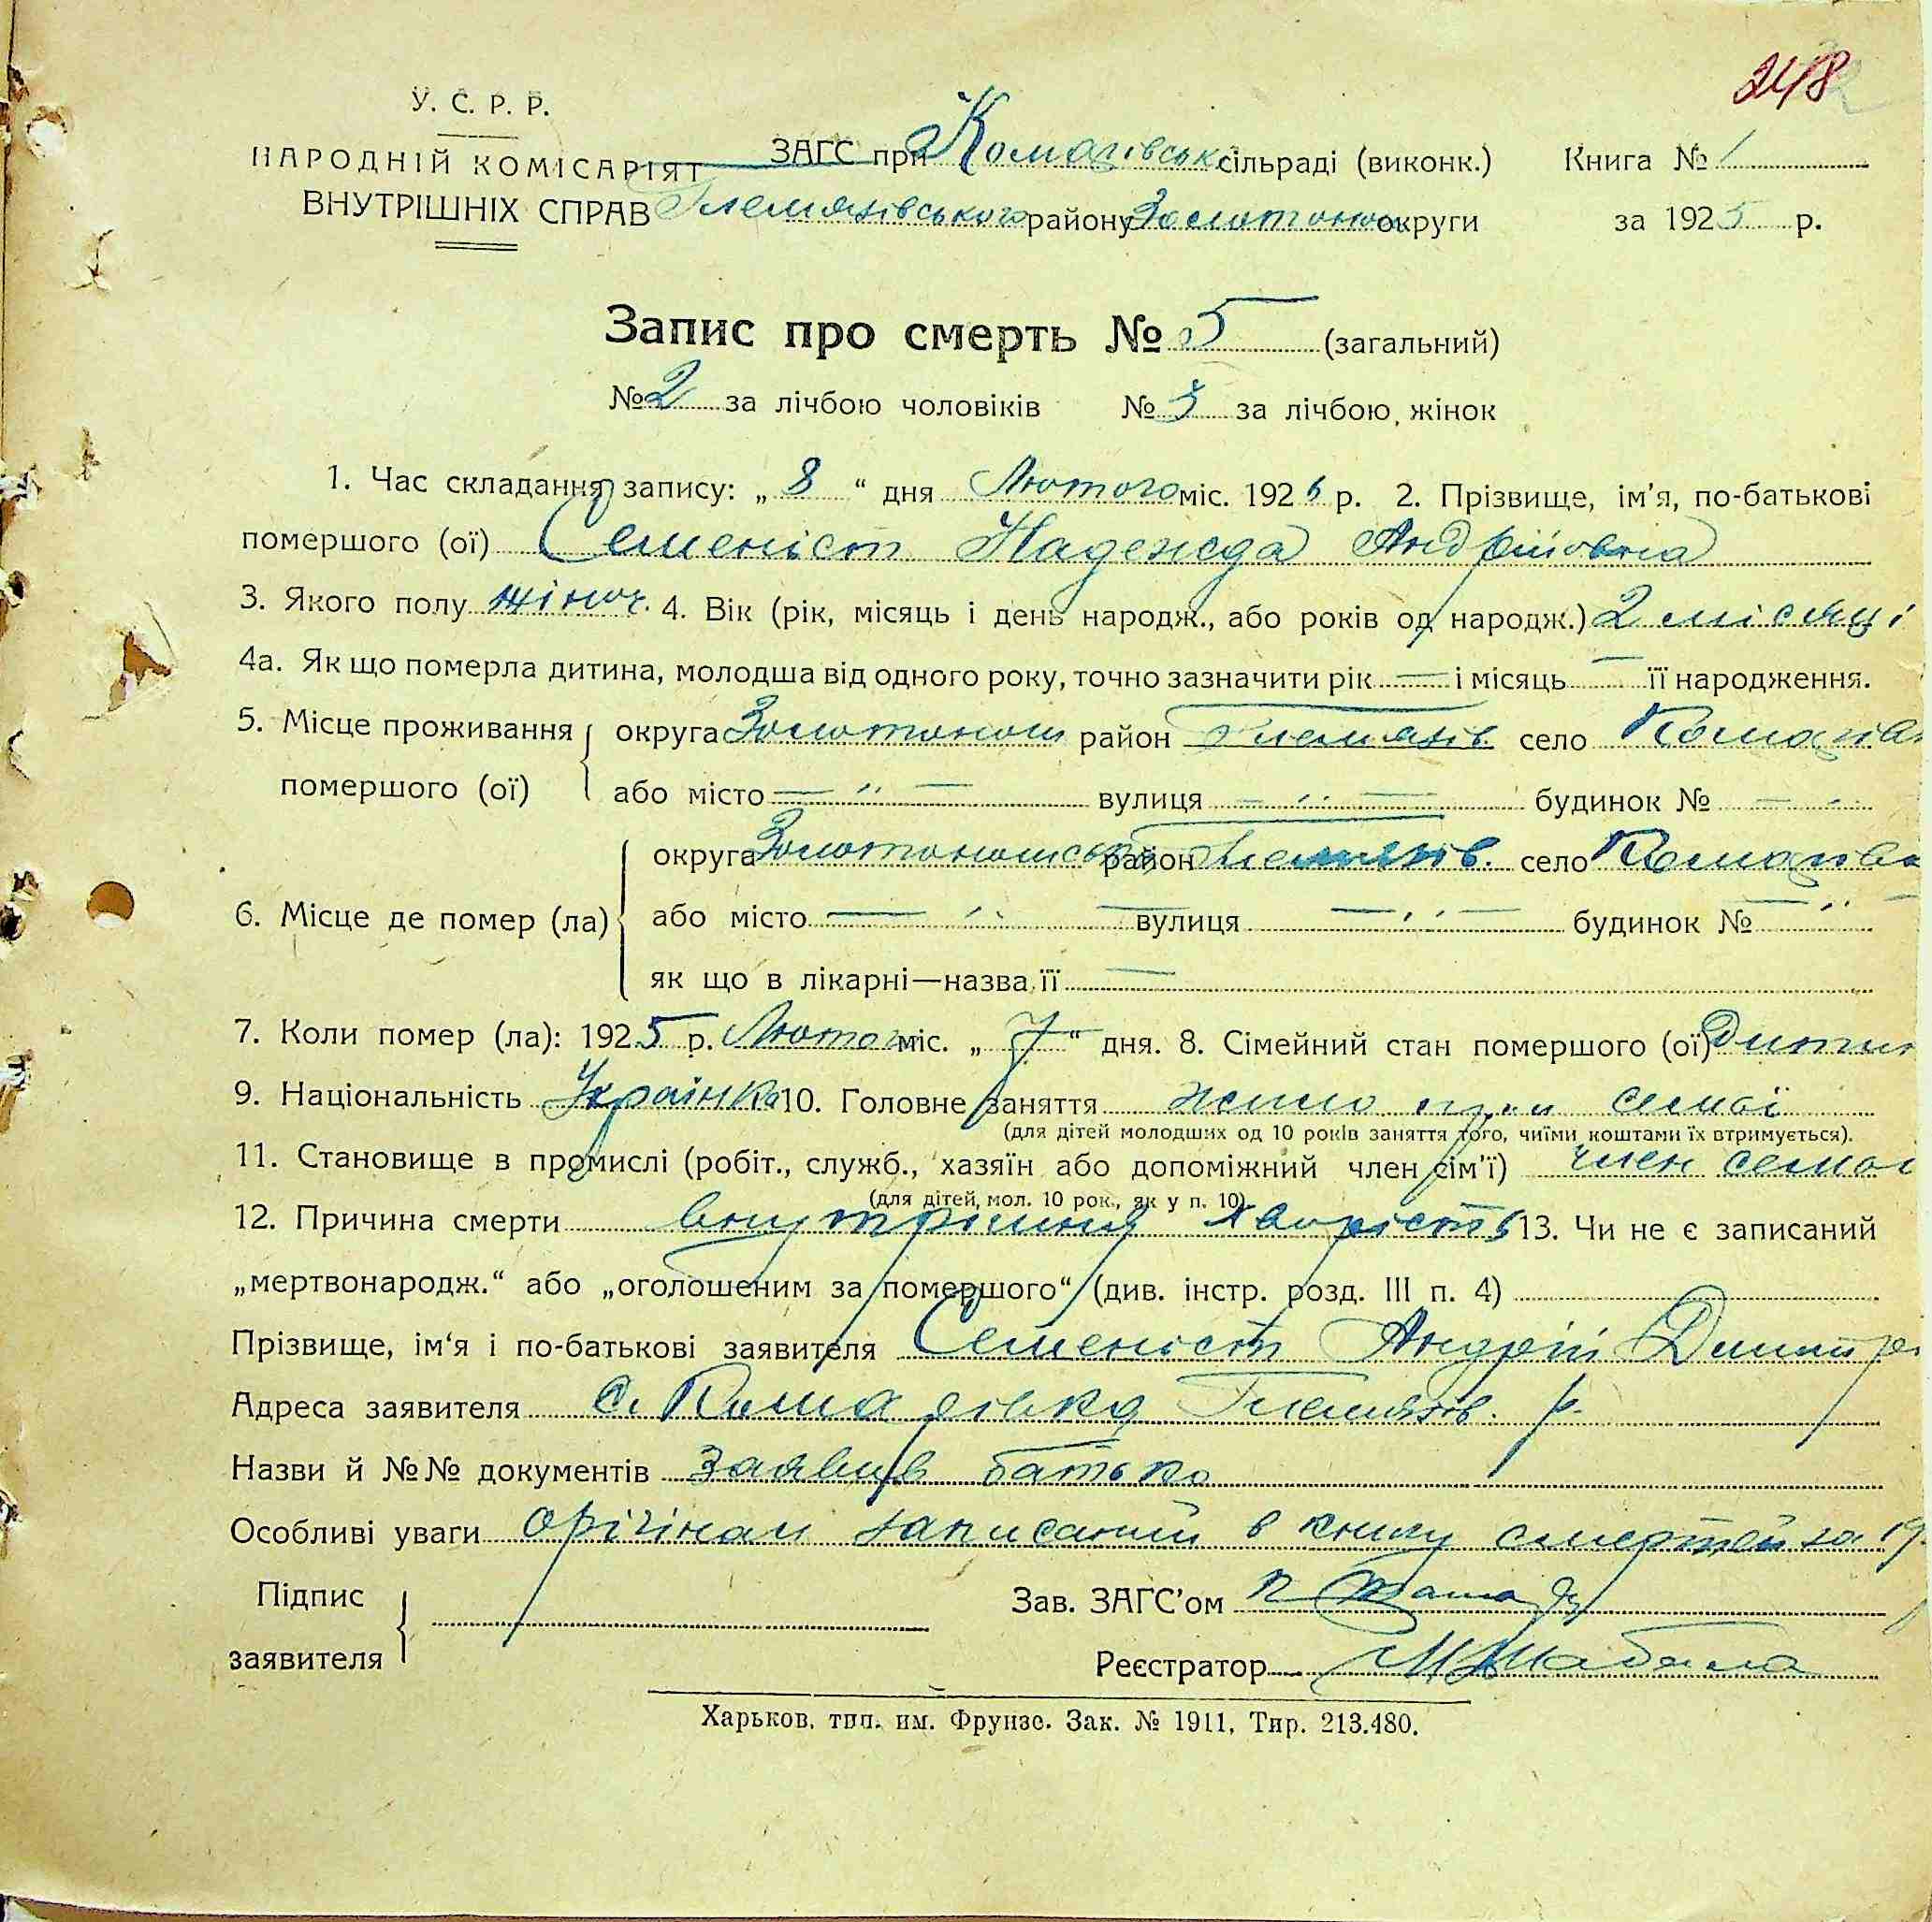 248
У. С. Р. Р.
НАРОДНІЙ КОМІСАРІЯТ ЗАГС при Комарівськ сільраді (виконк.) Книга № 1
ВНУТРІШНІХ СПРАВ Глемязівського району Золотонош округи за 1925 р.
Запис про смерть № 5 (загальний)
№ 2 за лічбою чоловіків № 3 за лічбою жінок
1. Час складання запису: „ 8 “ дня Лютого міс. 192 р. 2. Прізвище, ім'я, по-батькові
помершого (ої) Семеніст Надежда Андріївна
3. Якого полу жіноч. 4. Вік (рік, місяць і день народж., або років од народж.) 2 місяці
4а. Як що померла дитина, молодша від одного року, точно зазначити рік — і місяць — її народження.
5. Місце проживання округа Золотонош район Глемязів. село
помершого (ої) або місто — " — вулиця — " — будинок № — "
округа Золотоношська район Глемязів. село
6. Місце де помер (ла) або місто — " — вулиця — " — будинок № — "
як що в лікарні—назва її —
7. Коли помер (ла): 1925 р. Лютого міс. „ 7 “ дня. 8. Сімейний стан помершого (ої) Дитин
9. Національність Українка 10. Головне заняття жило при семьї
(для дітей молодших од 10 років заняття того, чиїми коштами їх втримується).
11. Становище в промислі (робіт., служб., хазяїн або допоміжний член сім'ї) член семьї
(для дітей, мол. 10 рок., як у п. 10)
12. Причина смерти внутрішня хворість 13. Чи не є записаний
„мертвонародж.“ або „оголошеним за помершого“ (див. інстр. розд. III п. 4)
Прізвище, ім‘я і по-батькові заявителя Семеніст Андрій Дмитр
Адреса заявителя с. Комарівка Глемязів. р.
Назви й №№ документів Заявив батько
Особливі уваги орігінал записаний в книгу смертей за 19
Підпис Зав. ЗАГС'ом
заявителя Реєстратор М Шабала
Харьков, тип. им. Фрунзе. Зак. № 1911, Тир. 213.480.